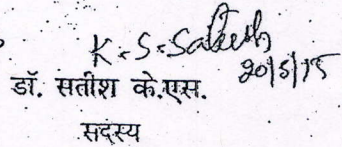 K.S.Satish
20/5/15
डॉ. सतीश के.एस.
सदस्य